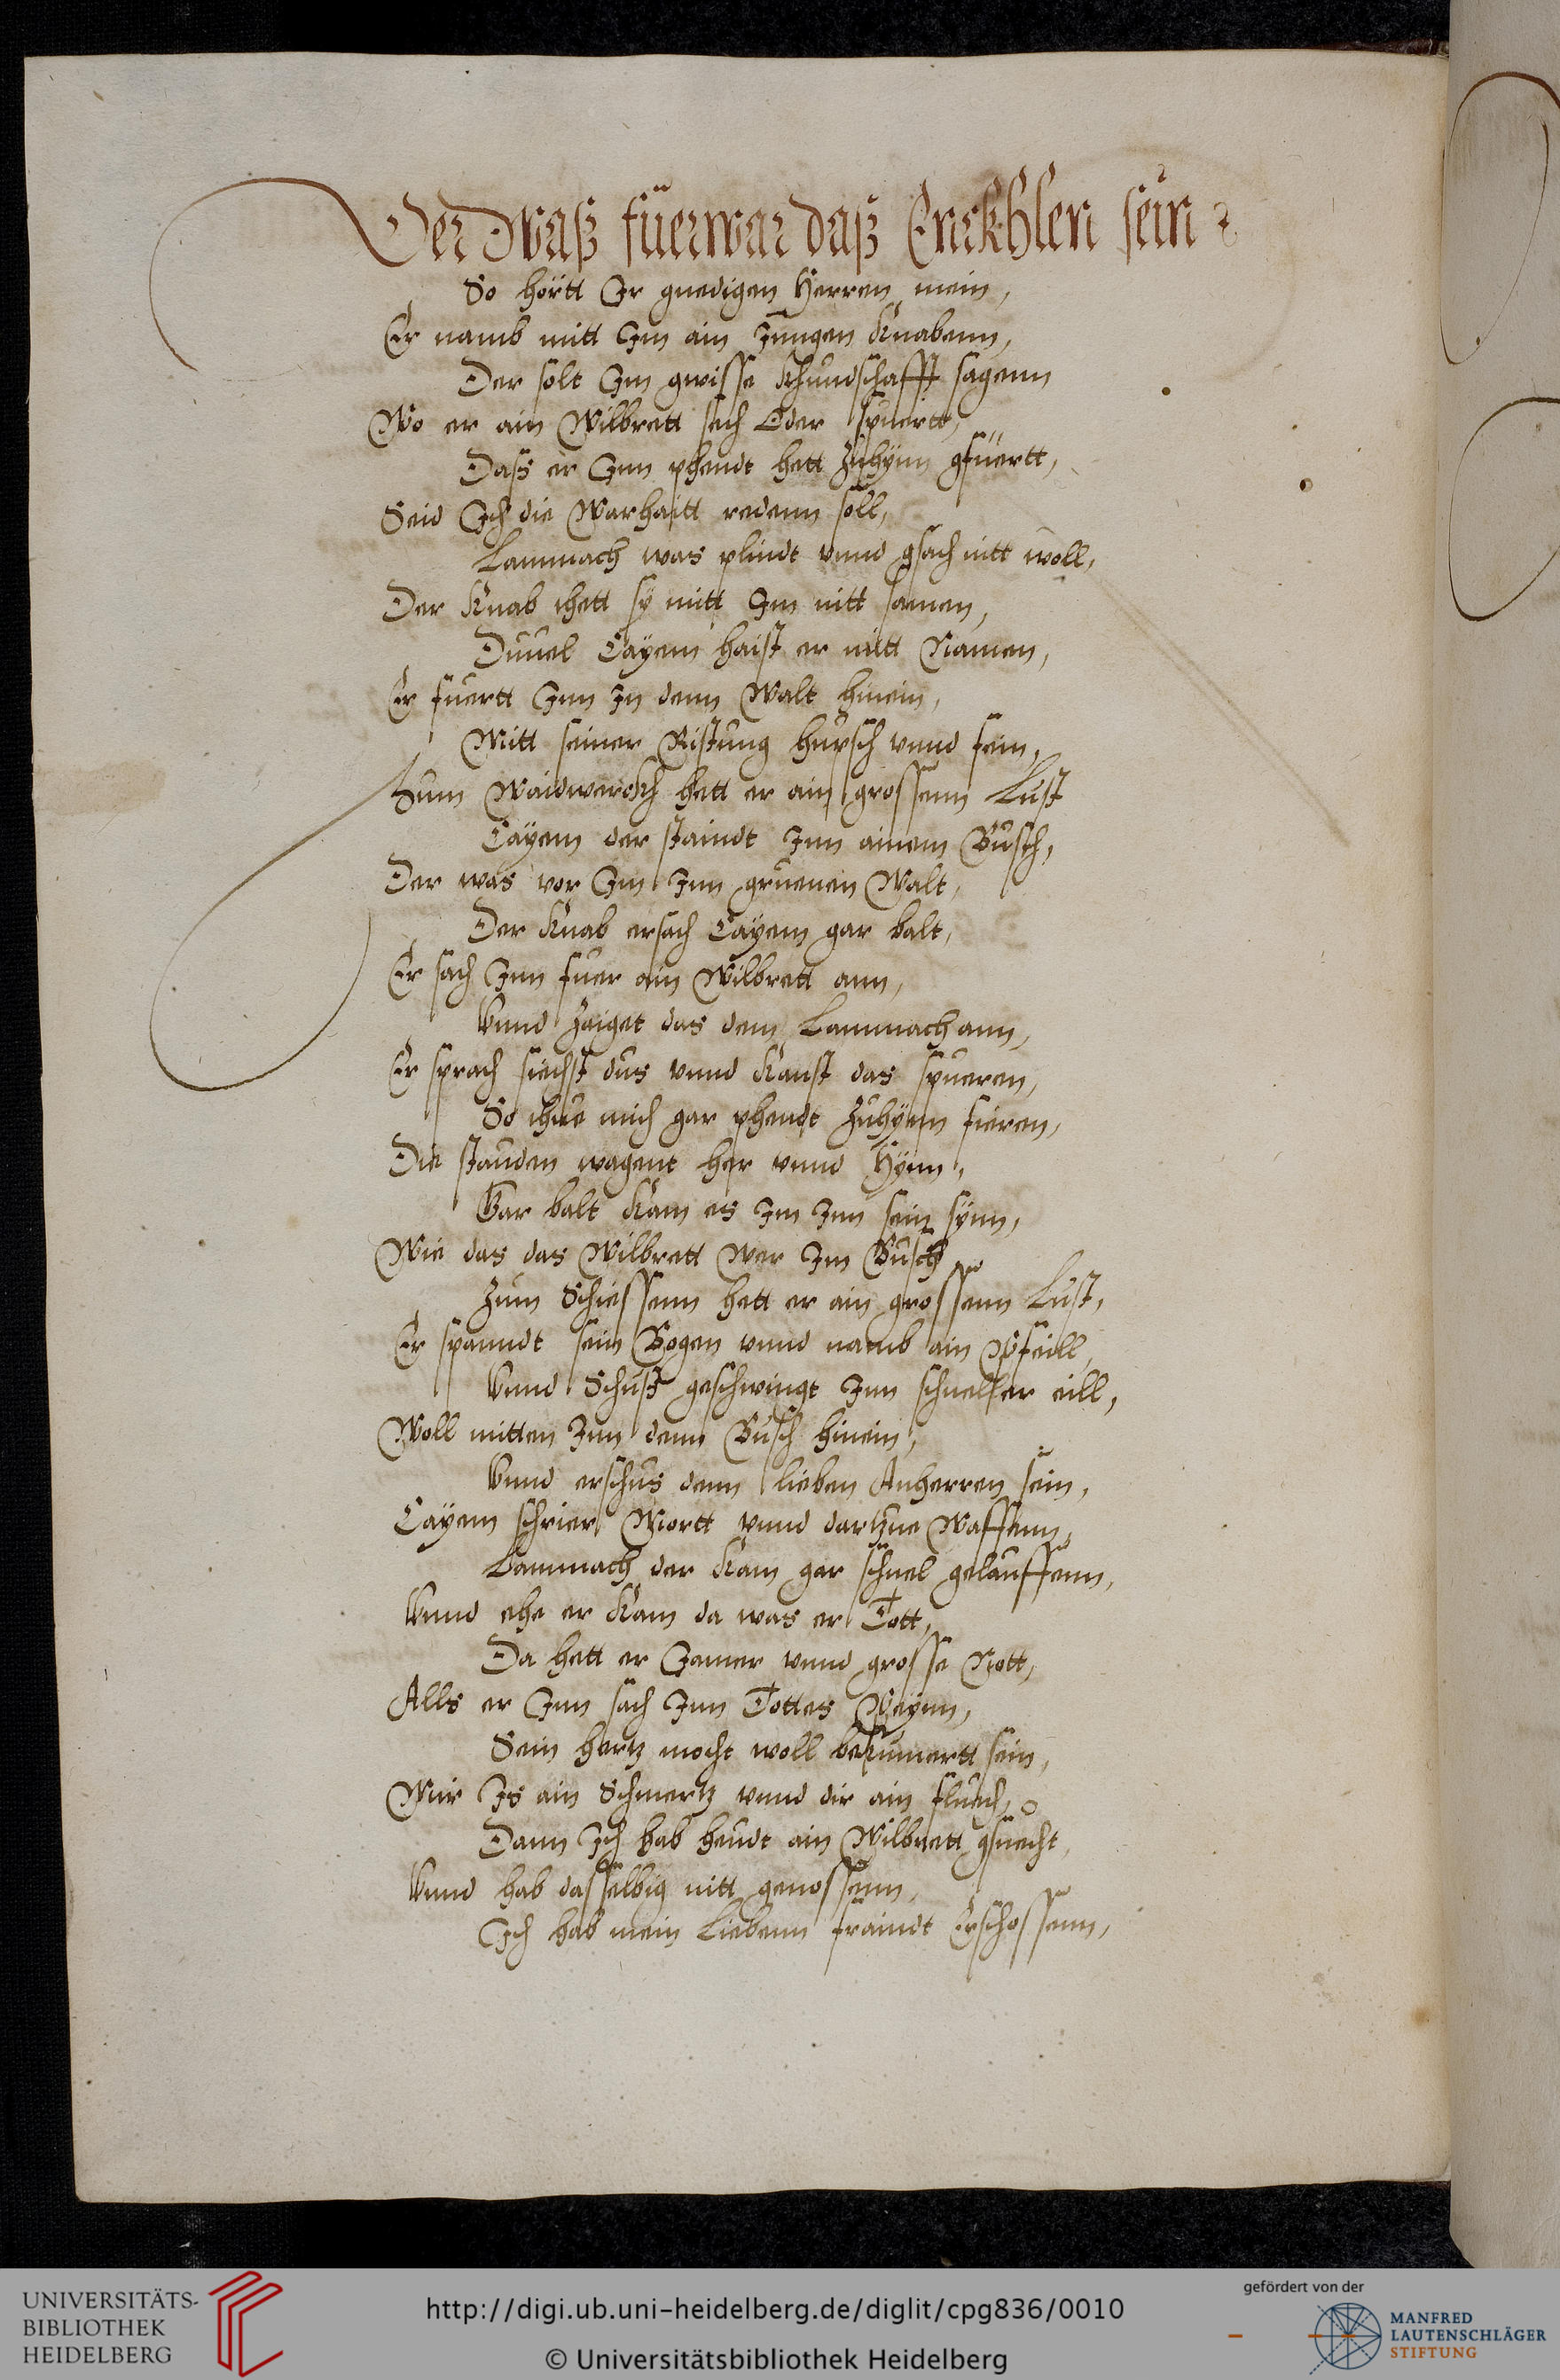 Der Waß füerwar daß Enickhlen sein
So hörtt Ir gnedigen Herren mein,
Er namb mitt Im ain Jungen Knabenn,
Der solt Im gwisse Khundschafft sagenn
Wo er ain Wilbrett sech Oder spüertt,
Dass er Inn phendt hett Zuhÿnn gfüertt,
Seid Ich die Warhaitt redenn soll,
Lammach was plindt vnnd gsach nitt woll,
Der Knab thett sÿ mitt Im nitt samen,
Er fuertt Inn In denn Walt hinein,
Mitt seiner Ristung hupsch vnnd fein,
Zum Waidwerckh hett er ain grossenn Lust
Caÿem der staindt Inn ainem Busch,
Der was vor Im Inn gruenen Walt,
Der Knab ersach Caÿem gar balt,
Er sach Inn fuer ain Wilbrett ann,
Vnnd Zaiget das dem Lammach ann,
Er sprach siechst dus vnnd Kanst das spueren,
So thue mich gar phendt Zuhÿnn fieren,
Die stauden wagent her vnnd Hÿnn,
Gar balt Kam es Im Inn sein sÿnn,
Wie das das Wilbrett Wer Im Busch
Zum Schiessenn hett er ain grossenn Lust,
Er spanndt sein Bogen vnnd namb ain Pfeill,
Vnnd Schuß geschwingt Inn schneller eill,
Woll mitten Inn denn Busch hinein,
Vnnd erschus denn lieben Anherren sein,
Caÿem schrier Mortt vnnd dartzue Waffenn,
Lammach der Kam gar schnel gelauffenn,
Vnnd ehe er Kam da was er Tott,
Da hett er Jamer vnnd grosse Nott,
Alls er Inn sach Inn Tottes Peÿnn,
Sein hertz mocht woll bekumertt sein,
Mir Is ain Schmertz vnnd dir ain fluech,
Dann Ich hab heudt ain Wilbrett gsuecht,
Vnnd hab dasselbig nitt genossenn,
Ich hab mein Liebenn fraindt Erschossenn,
UNIVERSITÄTS-
BIBLIOTHEK
HEIDELBERG
http://digi.ub.uni-heidelberg.de/diglit/cpg836/0010
© Universitätsbibliothek Heidelberg
gefördert von der
MANFRED
LAUTENSCHLÄGER
STIFTUNG